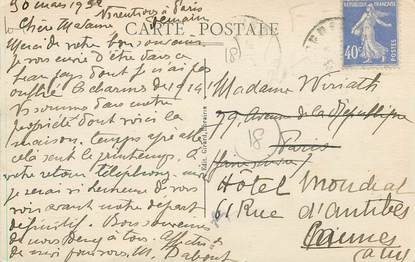 30 mars 1932
à Paris
demain
Chère Madame
CARTE POSTALE
Merci de votre bon souvenir
je vous envie d'être dans ce
beau pays dont je n'ai pas
oublié le charme
Ns sommes dans notre
propriété dont voici la
maison. temps
cela sent le printemps. A
votre retour téléphonez-
je serai si heureuse de vous
voir avant notre départ
définitif. Bons souvenirs
de nous deux à tous.
REPUBLIQUE FRANÇAISE
40c
POSTES
18
Madame
79 Avenue de la République
Paris
18
Hôtel Mondial
61 Rue d'Antibes
Cannes
(A M)